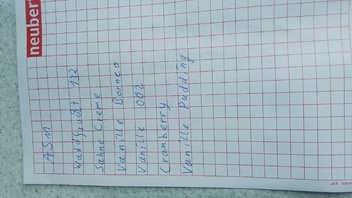 neuber
ASM
Waldfrucht 132
Sahne Creme
Vanille Bornea
Vanille 002
Cranberry
Vanille Pudding